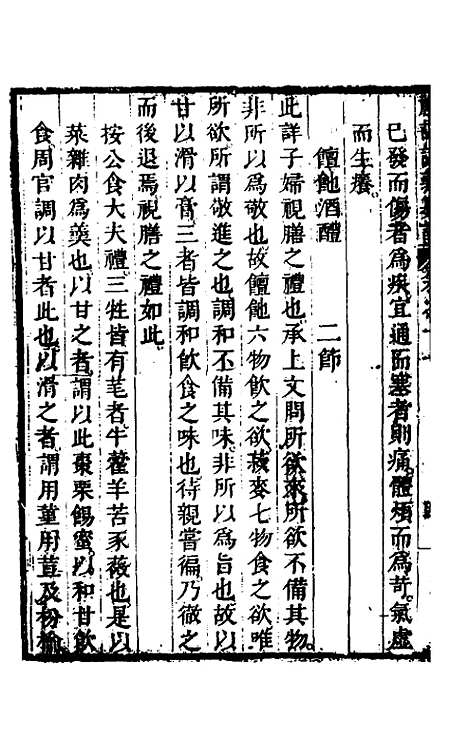 已發而傷者為疾宜通而塞者則痛體煩而為苛氣虛
而生癢
饘酏酒醴 二節
此詳子婦視膳之禮也承上文問所欲來所欲不備其物
非所以為敬也故饘酏六物飲之欲菽麥七物食之欲唯
所欲所謂敬進之也調和不備其味非所以為旨也故以
甘以滑以膏三者皆調和飲食之味也待親嘗徧乃徹之
而後退焉視膳之禮如此
按公食大夫禮三牲皆有芼者牛藿羊苦豕薇也是以
菜雜肉為羮也以甘之者謂以此棗栗餳蜜以和甘飲
食周官調以甘者此也以滑之者謂用菫用荁及枌榆